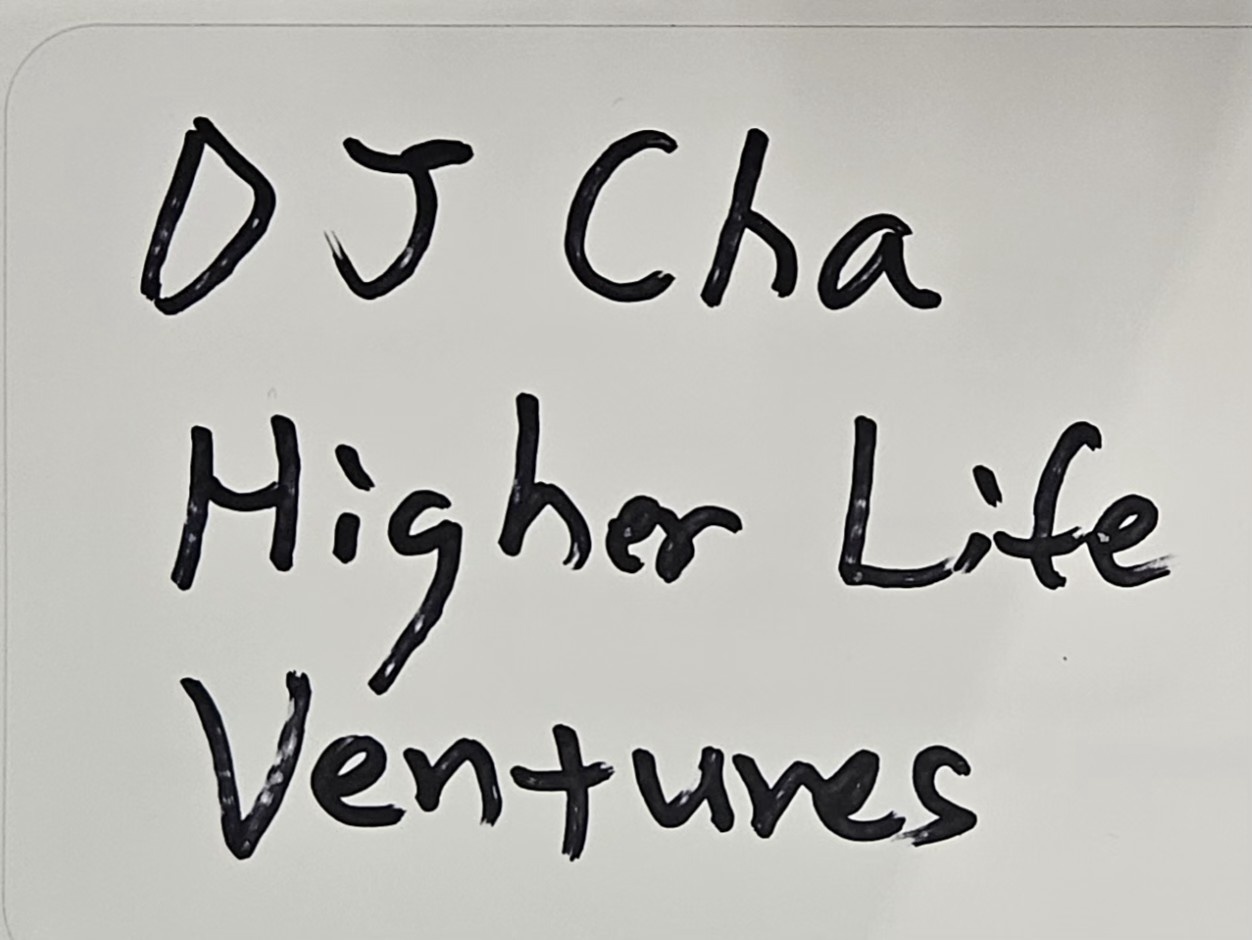 DJ Cha
Higher Life
Ventures